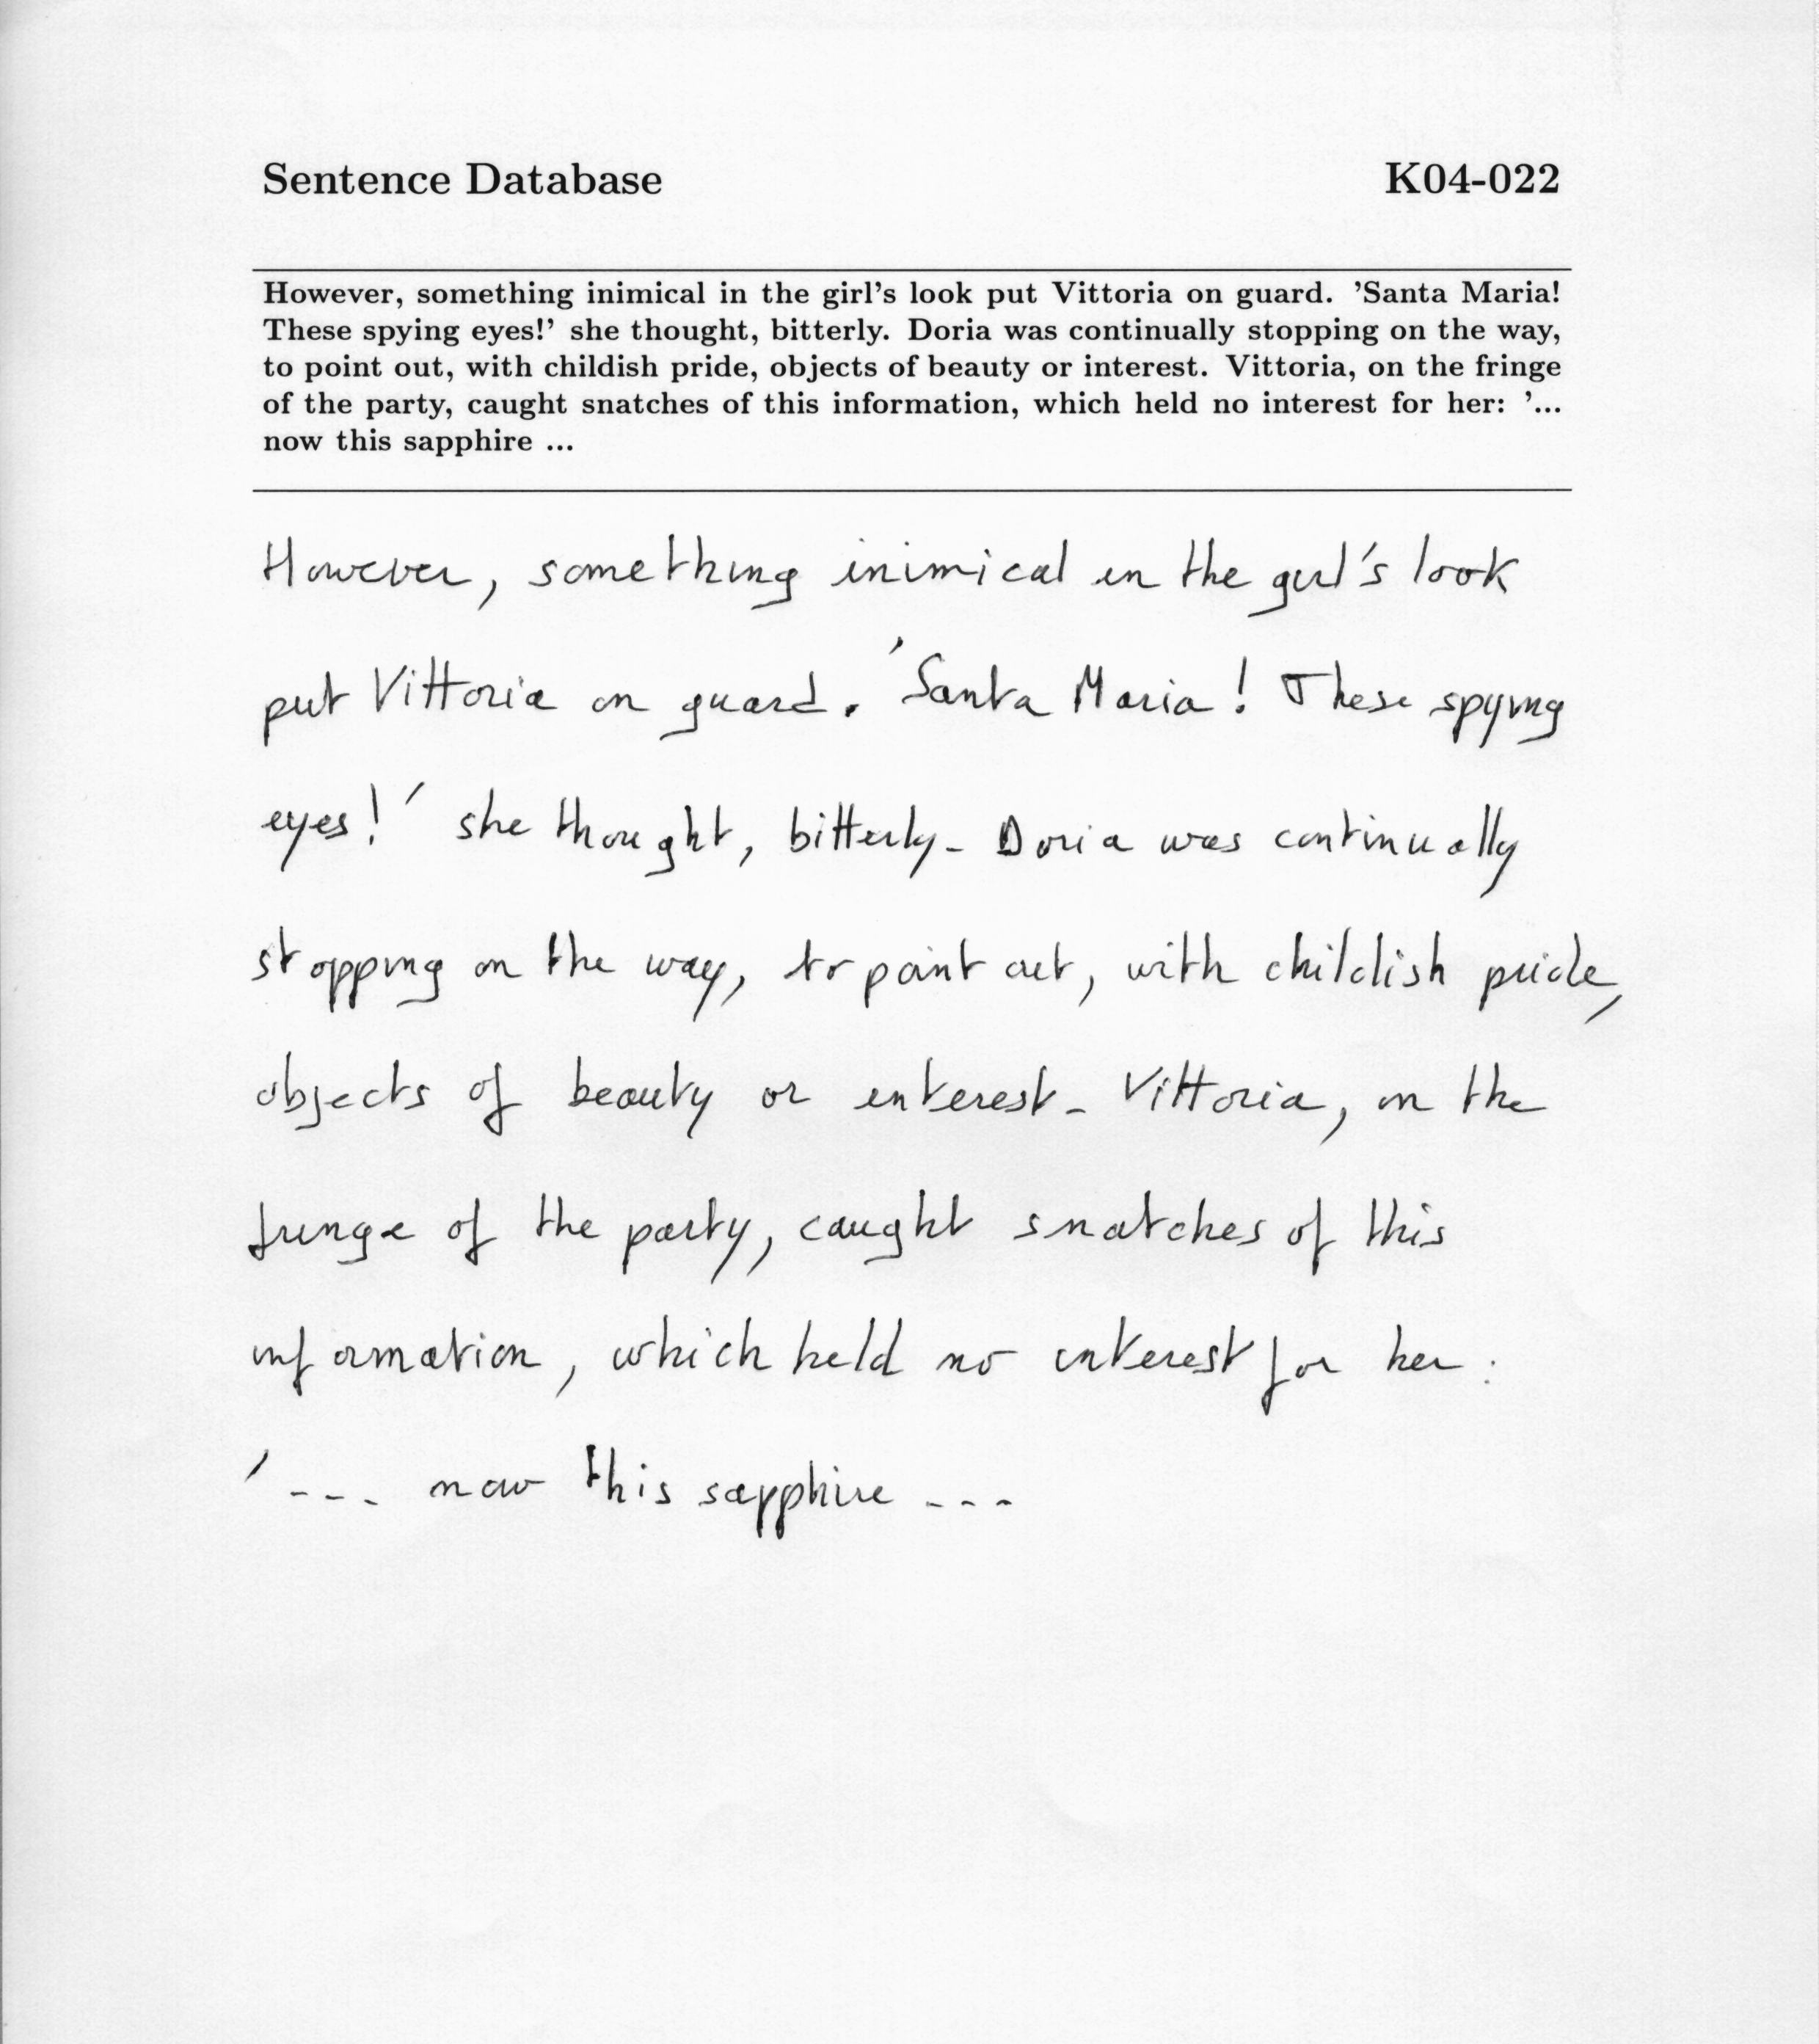 Sentence Database K04-022
However, something inimical in the girl's look put Vittoria on guard. 'Santa Maria!
These spying eyes!' she thought, bitterly. Doria was continually stopping on the way,
to point out, with childish pride, objects of beauty or interest. Vittoria, on the fringe
of the party, caught snatches of this information, which held no interest for her: '...
now this sapphire ...
However, something inimical in the girl's look
put Vittoria on guard. 'Santa Maria! These spying
eyes!' she thought, bitterly. Doria was continually
stopping on the way, to point out, with childish pride,
objects of beauty or interest. Vittoria, on the
fringe of the party, caught snatches of this
information, which held no interest for her:
'... now this sapphire ...